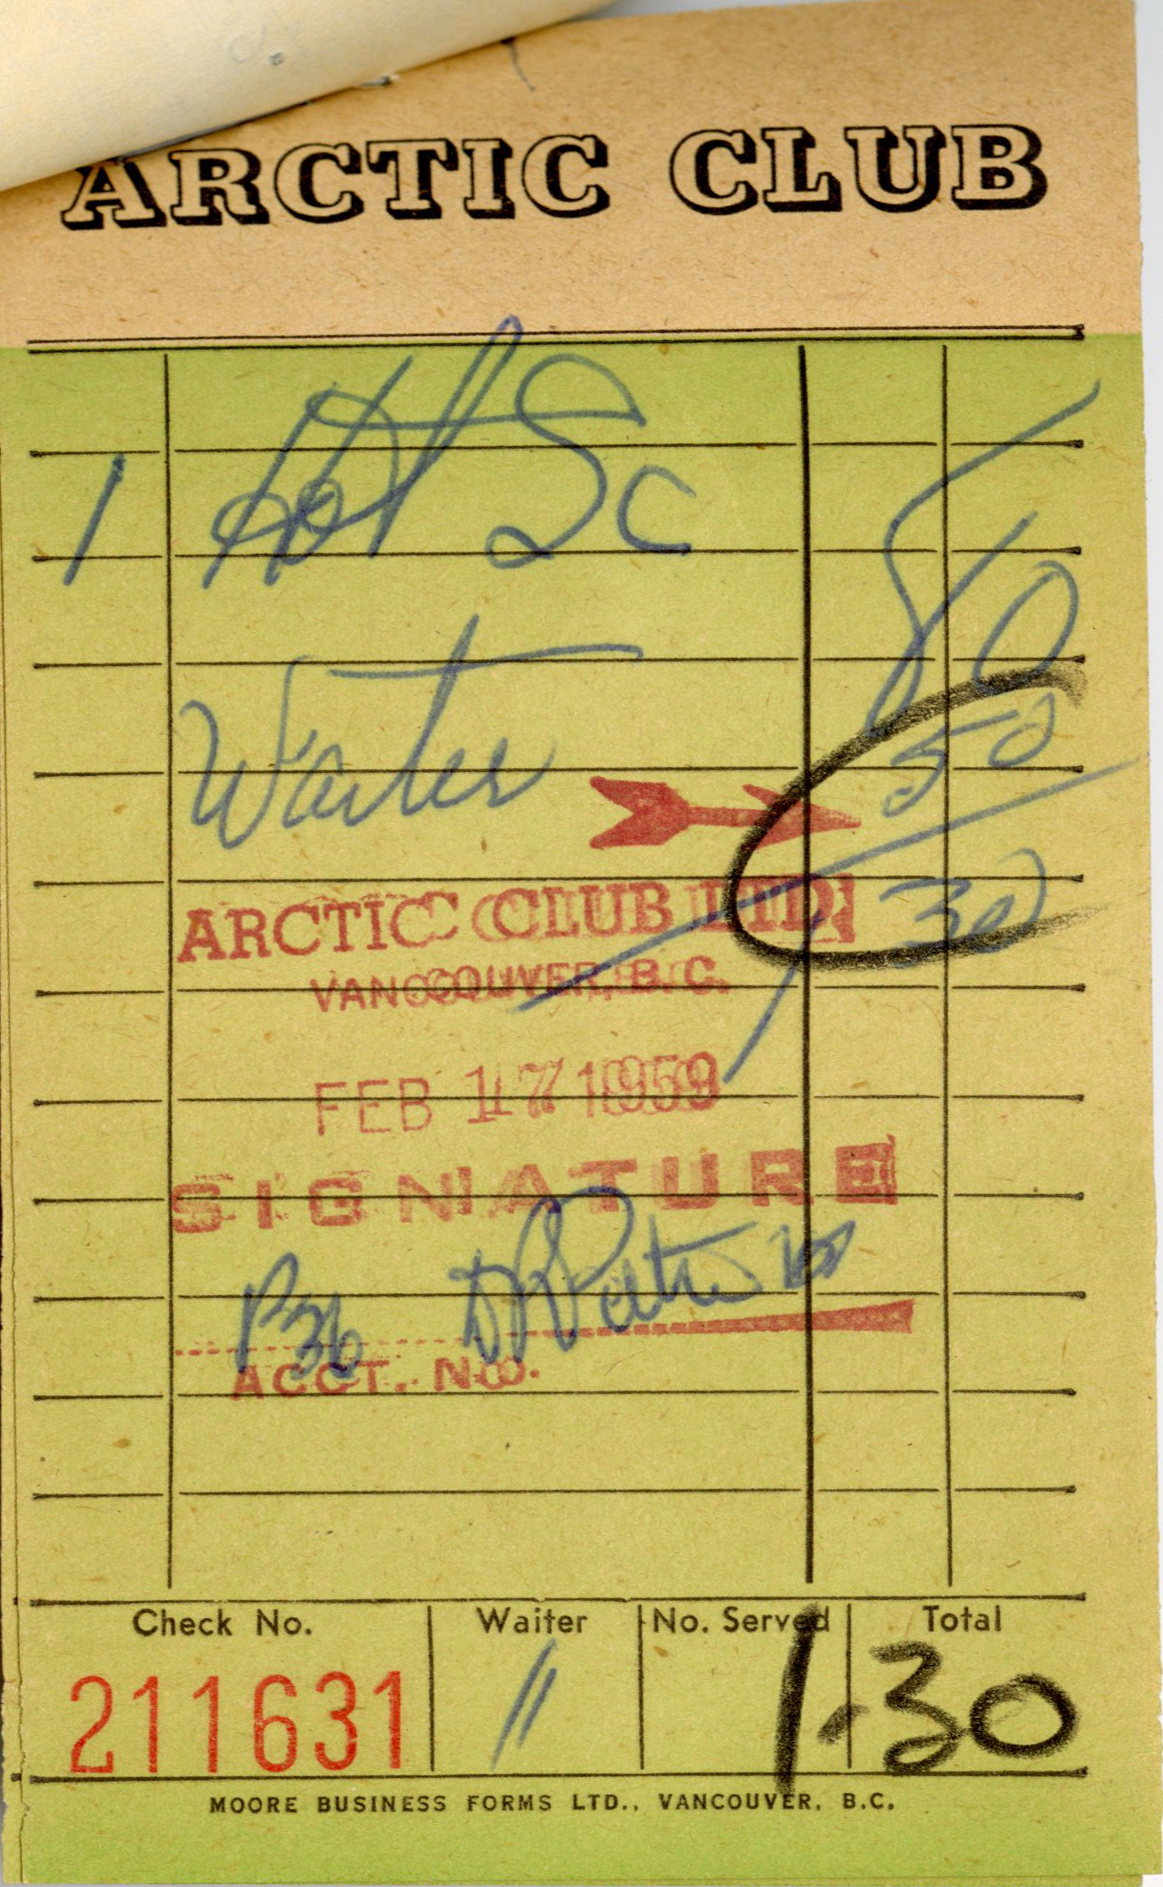 ARCTIC CLUB
1 Hot Sc 80
Waiter 50
1 30
ARCTIC CLUB LTD.
VANCOUVER, B.C.
FEB 17 1959
SIGNATURE
P36
ACCT. NO.
Check No. Waiter No. Served Total
211631 11 1.30
MOORE BUSINESS FORMS LTD., VANCOUVER, B.C.